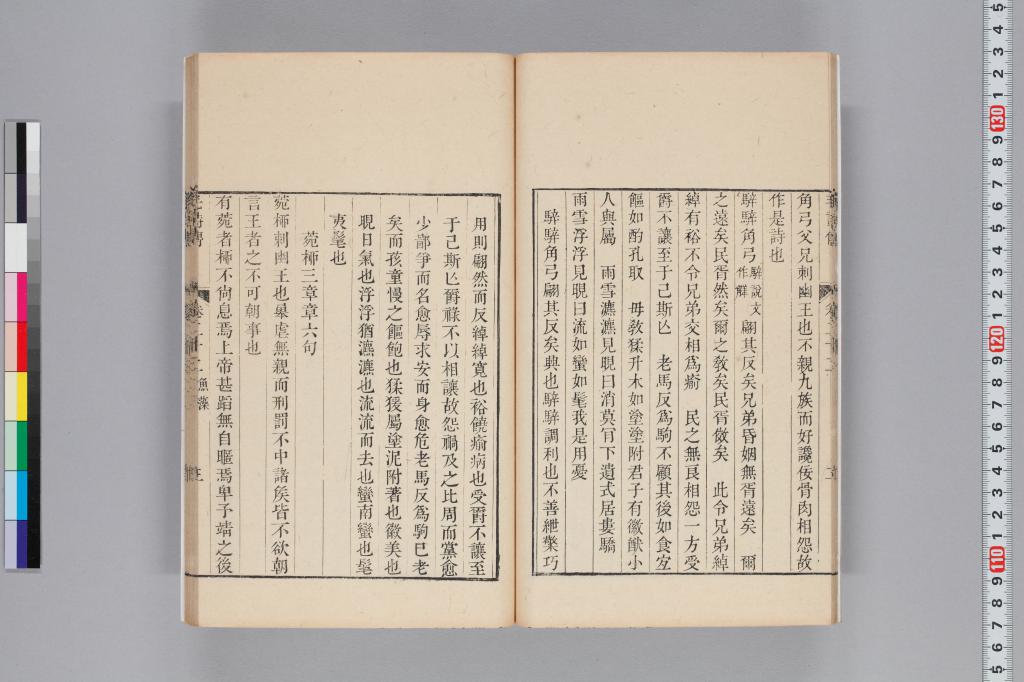 角弓父兄刺幽王也不親九族而好讒佞骨肉相怨故
作是詩也
騂騂角弓騂說文作觲翩其反矣兄弟昏姻無胥遠矣　爾
之遠矣民胥然矣爾之敎矣民胥傚矣　此令兄弟綽
綽有裕不令兄弟交相爲瘉　民之無良相怨一方受
爵不讓至于己斯亾　老馬反爲駒不顧其後如食宐
饇如酌孔取　毋敎猱升木如塗塗附君子有徽猷小
人與屬　雨雪瀌瀌見晛曰消莫肎下遺式居婁驕
雨雪浮浮見晛曰流如蠻如髦我是用憂
騂騂角弓翩其反矣典也騂騂調利也不善紲檠巧
用則翩然而反綽綽寬也裕饒瘉病也受爵不讓至
于己斯亾爵祿不以相讓故怨禍及之比周而黨愈
少鄙爭而名愈辱求安而身愈危老馬反爲駒已老
矣而孩童慢之饇飽也猱猨屬塗泥附著也徽美也
晛日氣也浮浮猶瀌瀌也流流而去也蠻南蠻也髦
夷髦也
菀柳三章章六句
菀柳刺幽王也暴虐無親而刑罰不中諸矦皆不欲朝
言王者之不可朝事也
有菀者柳不尙息焉上帝甚蹈無自暱焉卑予靖之後
卷二十二
漁藻